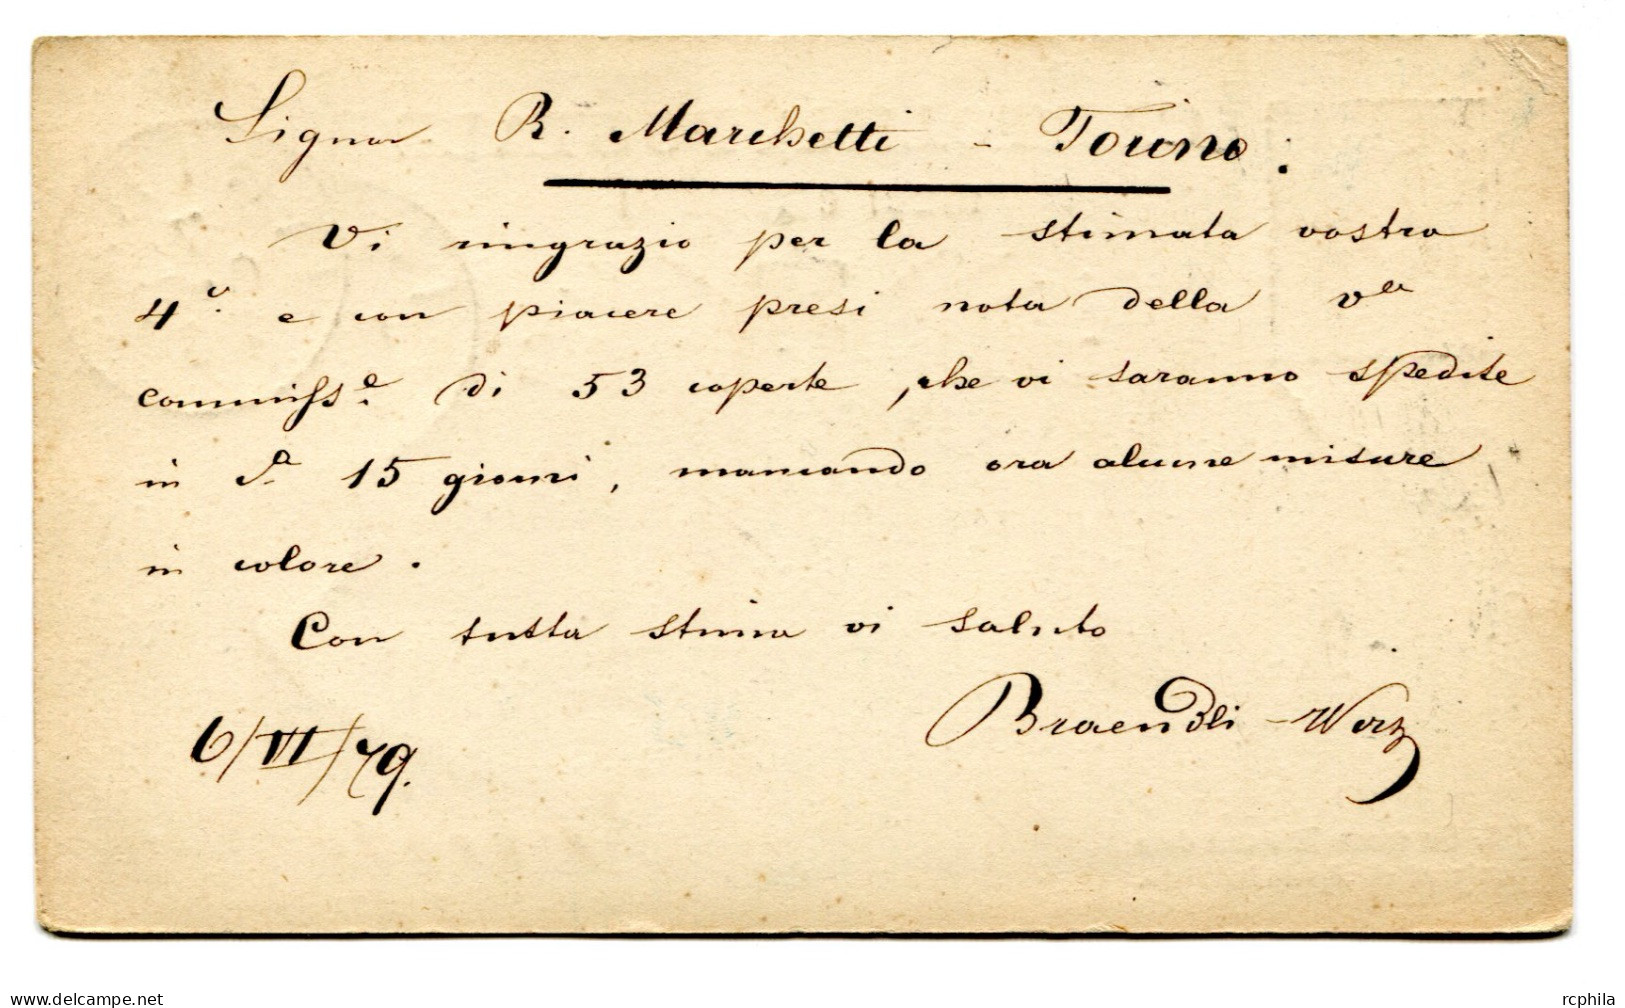 Signor R. Marchetti - Torino:
Vi ringrazio per la stimata vostra
4c. e con piacere presi nota della va
commisse. di 53 coperte, che vi saranno spedite
in 15 giorni, mancando ora alcune misure
in colore.
Con tutta stima vi saluto
Braendli-Werz
6/VI/79.
delcampe.net
rcphila